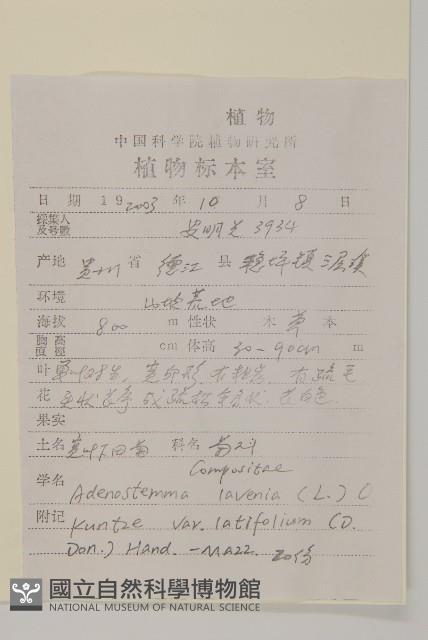 植物
中国科学院植物研究所
植物标本室
日期 19 2003 年 10 月 8 日
採集人及号数 安明态 3934
产地 贵州 省 德江 县 稳坪镇
环境 山坡荒地
海拔 800 m 性状 木 草 本
胸高直徑 cm 体高 30-90cm m
叶 单叶对生, 宽卵形, 有粗齿, 有疏毛
花 白色.
果实
土名 宽叶下田菊 科名 菊科
Compositae
学名 Adenostemma lavenia (L.) O
附记 Kuntze var. latifolium (D.
Don.) Hand. -Mazz. 20份
國立自然科學博物館
NATIONAL MUSEUM OF NATURAL SCIENCE